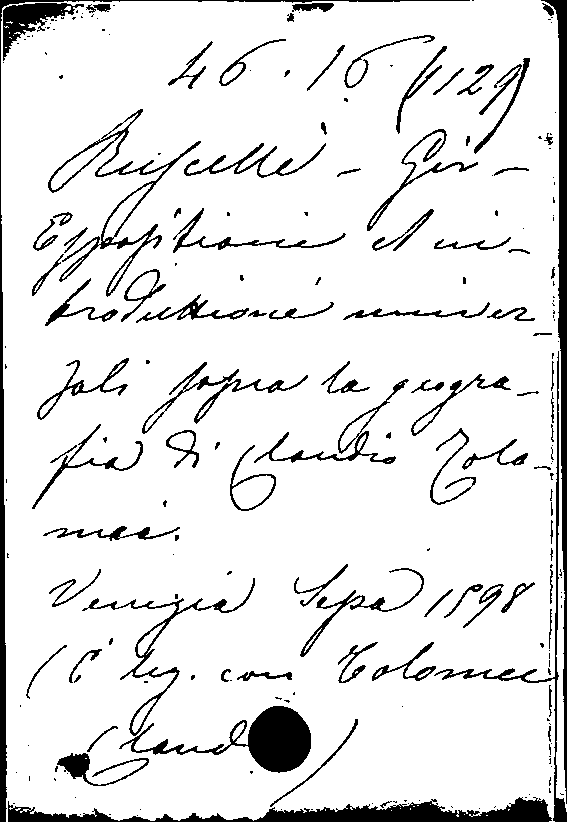 46.16 (129)
Ruscelli - Gir -
Espositioni et in-
troduttioni univer-
sali sopra la geogra-
fia di Claudio Tolo-
mei.
Venezia Sepa 1598
(È leg. con Tolomei
Claud )